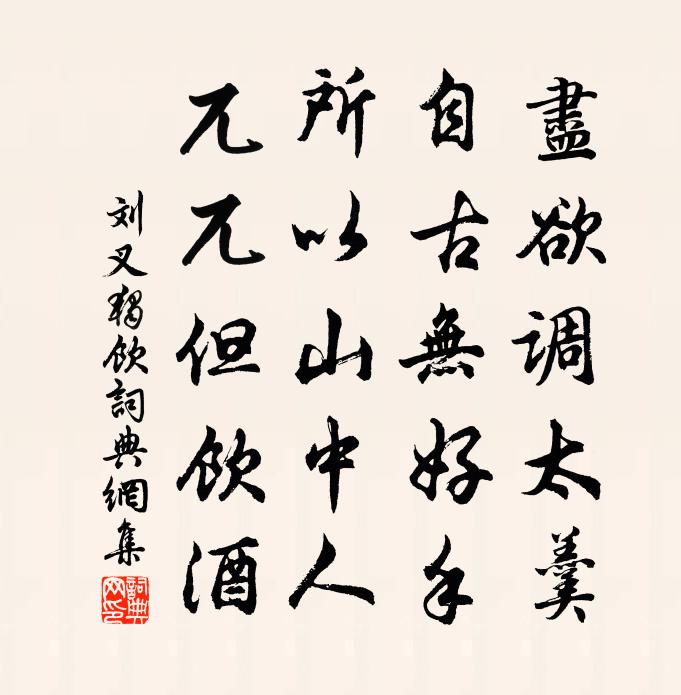 盡欲調太羹
自古無好手
所以山中人
兀兀但飲酒
刘叉獨飲詞典網集
詞典網印